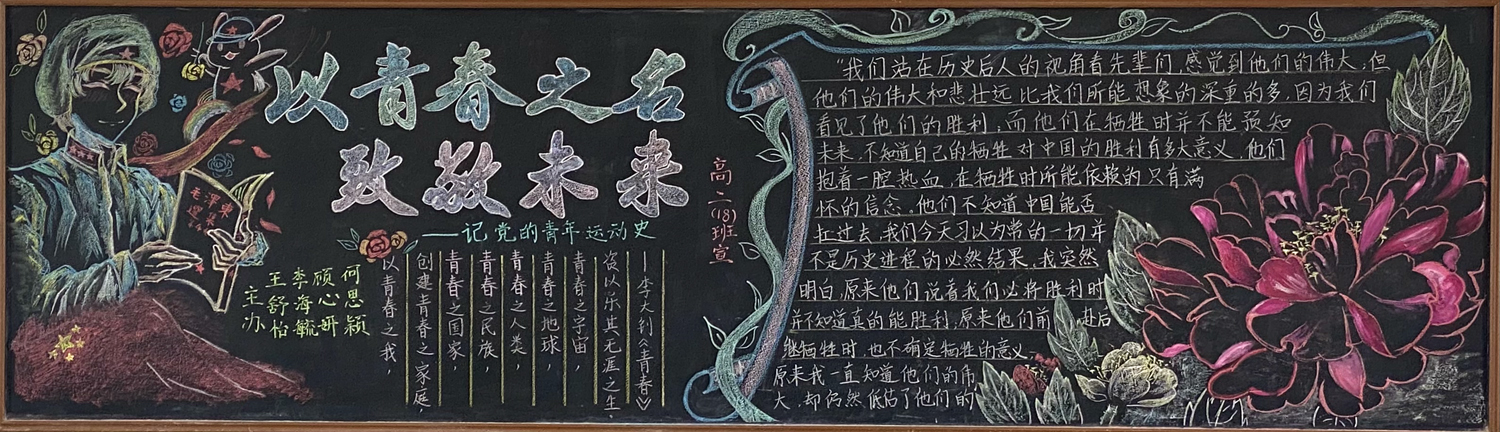 以青春之名
致敬未来
——记党的青年运动史
毛泽東
選集
高二(18)班宣
何思颖
顾心妍
李海毓
王舒怡
主办
以青春之我，
创建青春之家庭，
青春之国家，
青春之民族，
青春之人类，
青春之地球，
青春之宇宙，
资以乐其无涯之生。
——李大钊《青春》
“我们站在历史后人的视角看先辈们，感觉到他们的伟大，但
他们的伟大和悲壮远比我们所能想象的深重的多，因为我们
看见了他们的胜利，而他们在牺牲时并不能预知
未来，不知道自己的牺牲对中国的胜利有多大意义，他们
抱着一腔热血，在牺牲时所能依赖的只有满
怀的信念。他们不知道中国能否
扛过去，我们今天习以为常的一切并
不是历史进程的必然结果，我突然
明白，原来他们说着我们必将胜利时
并不知道真的能胜利；原来他们前赴后
继牺牲时，也不确定牺牲的意义
原来我一直知道他们的伟
大，却仍然低估了他们的